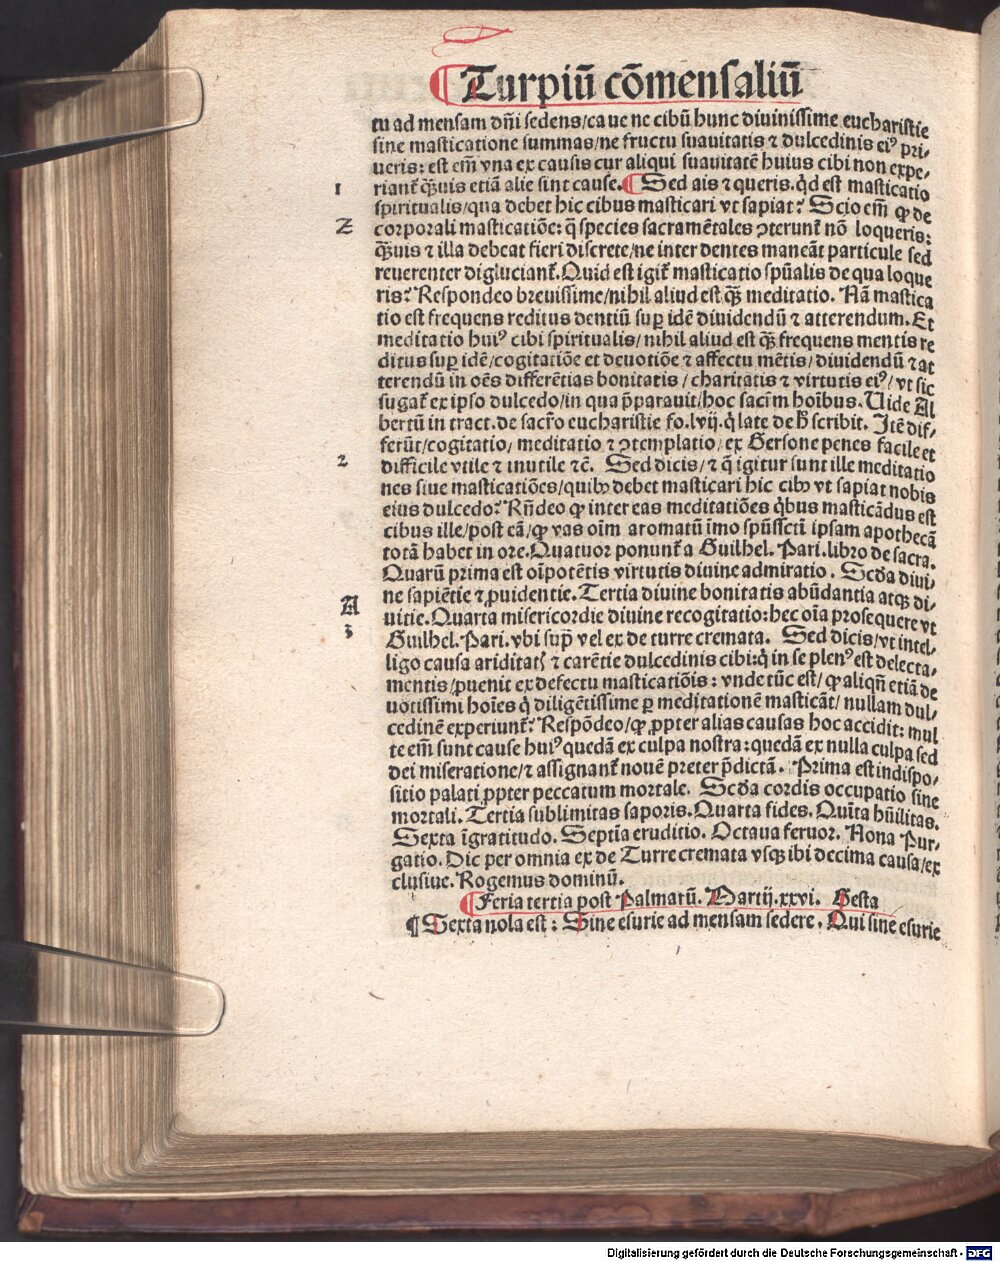 Turpiū cōmensaliū
tu ad mensam dn̄i sedens/caue ne cibū hunc diuinissime eucharistie
sine masticatione summas/ne fructu suauitatis ⁊ dulcedinis eiꝰ pri/
ueris: est em̄ vna ex causis cur aliqui suauitatē huius cibi non expe/
1 riant̄ q̄uis etiā alie sint cause. ¶ Sed ais ⁊ queris. qd̄ est masticatio
spiritualis/qua debet hic cibus masticari vt sapiat? Scio em̄ ꝙ de
Z corporali masticatiōe: q̄ species sacramētales ꝯterunt̄ nō loqueris:
q̄uis ⁊ illa debeat fieri discrete/ne inter dentes maneāt particule sed
reuerenter digluciant̄. Quid est igit̄ masticatio spūalis de qua loque
ris? Respondeo breuissime/nihil aliud est q̄ꝫ meditatio. Nā mastica
tio est frequens reditus dentiū sup̱ idē diuidendū ⁊ atterendum. Et
meditatio huiꝰ cibi spiritualis/nihil aliud est q̄ꝫ frequens mentis re
ditus sup̱ idē/cogitatiōe et deuotiōe ⁊ affectu mētis/diuidendū ⁊ at
terendū in oēs differētias bonitatis/charitatis ⁊ virtutis eiꝰ/vt sic
sugat̄ ex ipso dulcedo/in qua p̄parauit/hoc sacr̄m hoībus. Uide Al
bertū in tract. de sacr̄o eucharistie fo. lvij. q̇ late de h̄ scribit. Itē dif/
ferūt/cogitatio/meditatio ⁊ ꝯtemplatio/ex Gersone penes facile et
2 difficile vtile ⁊ inutile ⁊c̄. Sed dicis/⁊ q̄ igitur sunt ille meditatio
nes siue masticatiōes/quibꝫ debet masticari hic cibꝫ vt sapiat nobis
eius dulcedo? Rn̄deo ꝙ inter eas meditatiōes q̇bus masticādus est
cibus ille/post eā/ꝙ vas oīm aromatū imo spūssctī ipsam apothecā
totā habet in ore. Quatuor ponunt̄ a Guilhel. Pari. libro de sacra.
Quarū prima est oīpotētis virtutis diuine admiratio. Scd̄a diui/
ne sapiētie ⁊ ꝓuidentie. Tertia diuine bonitatis abūdantia atqꝫ di/
A uitie. Quarta misericordie diuine recogitatio: hec oīa prosequere vt
3 Guilhel. Pari. vbi sup̄ vel ex de turre cremata. Sed dicis/vt intel/
ligo causa ariditatꝭ ⁊ carētie dulcedinis cibi: q̇ in se plenꝰ est delecta/
mentis/ꝓuenit ex defectu masticatiōis: vnde tūc est/ꝙ aliqn̄ etiā de
uotissimi hoīes q̇ diligētissime ꝑ meditationē masticāt/nullam dul/
cedinē experiunt̄? Respōdeo/ꝙ ꝓpter alias causas hoc accidit: mul
te em̄ sunt cause huiꝰ quedā ex culpa nostra: quedā ex nulla culpa sed
dei miseratione/⁊ assignant̄ nouē preter p̄dictā. Prima est indispo/
sitio palati ꝓpter peccatum mortale. Scd̄a cordis occupatio sine
mortali. Tertia sublimitas saporis. Quarta fides. Quīta hūilitas.
Sexta īgratitudo. Septīa eruditio. Octaua feruor. Nona Pur/
gatio. Dic per omnia ex de Turre cremata vsqꝫ ibi decima causa/ex
clusiue. Rogemus dominū.
¶ Feria tertia post Palmarū. Martij. xxvi. Gesta
¶ Sexta nola est: Sine esurie ad mensam sedere. Qui sine esurie
Digitalisierung gefördert durch die Deutsche Forschungsgemeinschaft - DFG